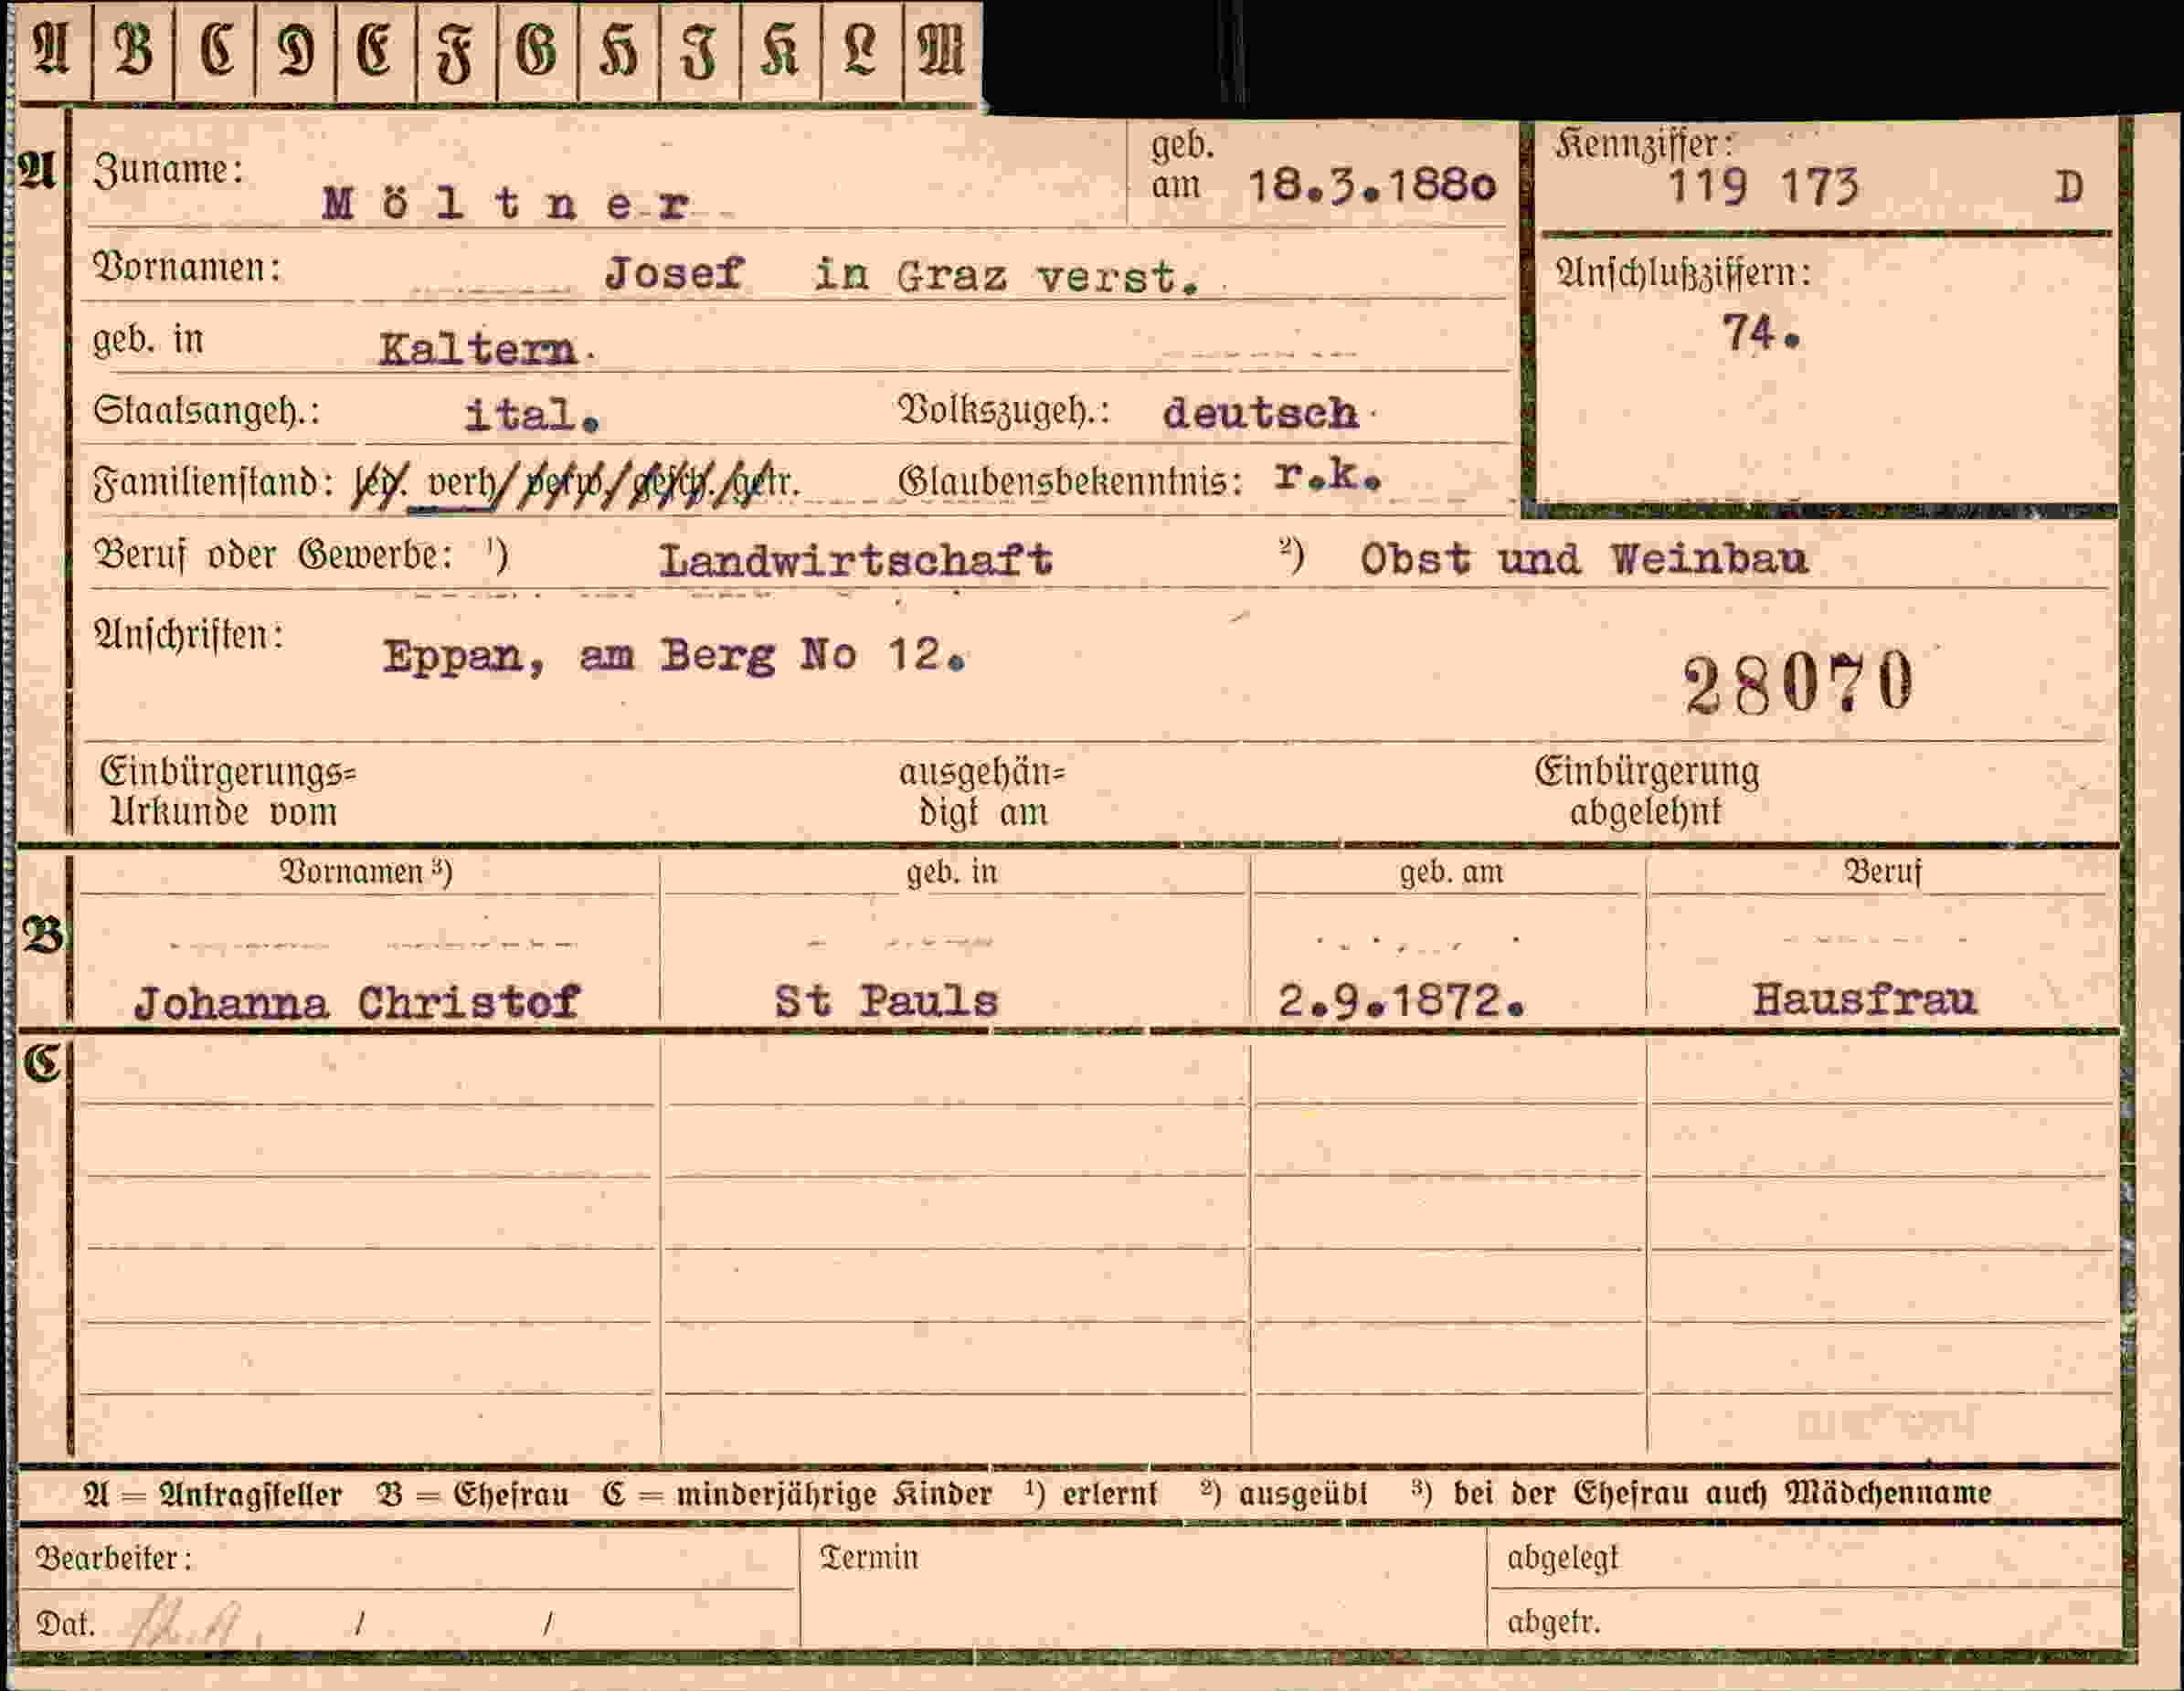 A B C D E F G H I K L M
A Zuname: Möltner geb. am 18.3.1880 Kennziffer: 119 173 D
Vornamen: Josef in Graz verst. Anschlußziffern:
74.
geb. in Kaltern.
Staatsangeh.: ital. Volkszugeh.: deutsch
Familienstand: led. verh. verw. gesch. getr. Glaubensbekenntnis: r.k.
Beruf oder Gewerbe: ¹) Landwirtschaft ²) Obst und Weinbau
Anschriften: Eppan, am Berg No 12.
28070
Einbürgerungs= ausgehän= Einbürgerung
Urkunde vom digt am abgelehnt
Vornamen ³) geb. in geb. am Beruf
B
Johanna Christof St Pauls 2.9.1872. Hausfrau
C
A = Antragsteller B = Ehefrau C = minderjährige Kinder ¹) erlernt ²) ausgeübt ³) bei der Ehefrau auch Mädchenname
Bearbeiter: Termin abgelegt
Dat. / / abgetr.